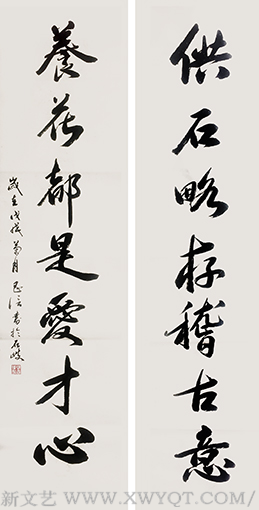 供石略存稽古意
養花都是愛才心
歲在戊戌菊月
書於石岐
新文艺 www.xwyqt.com